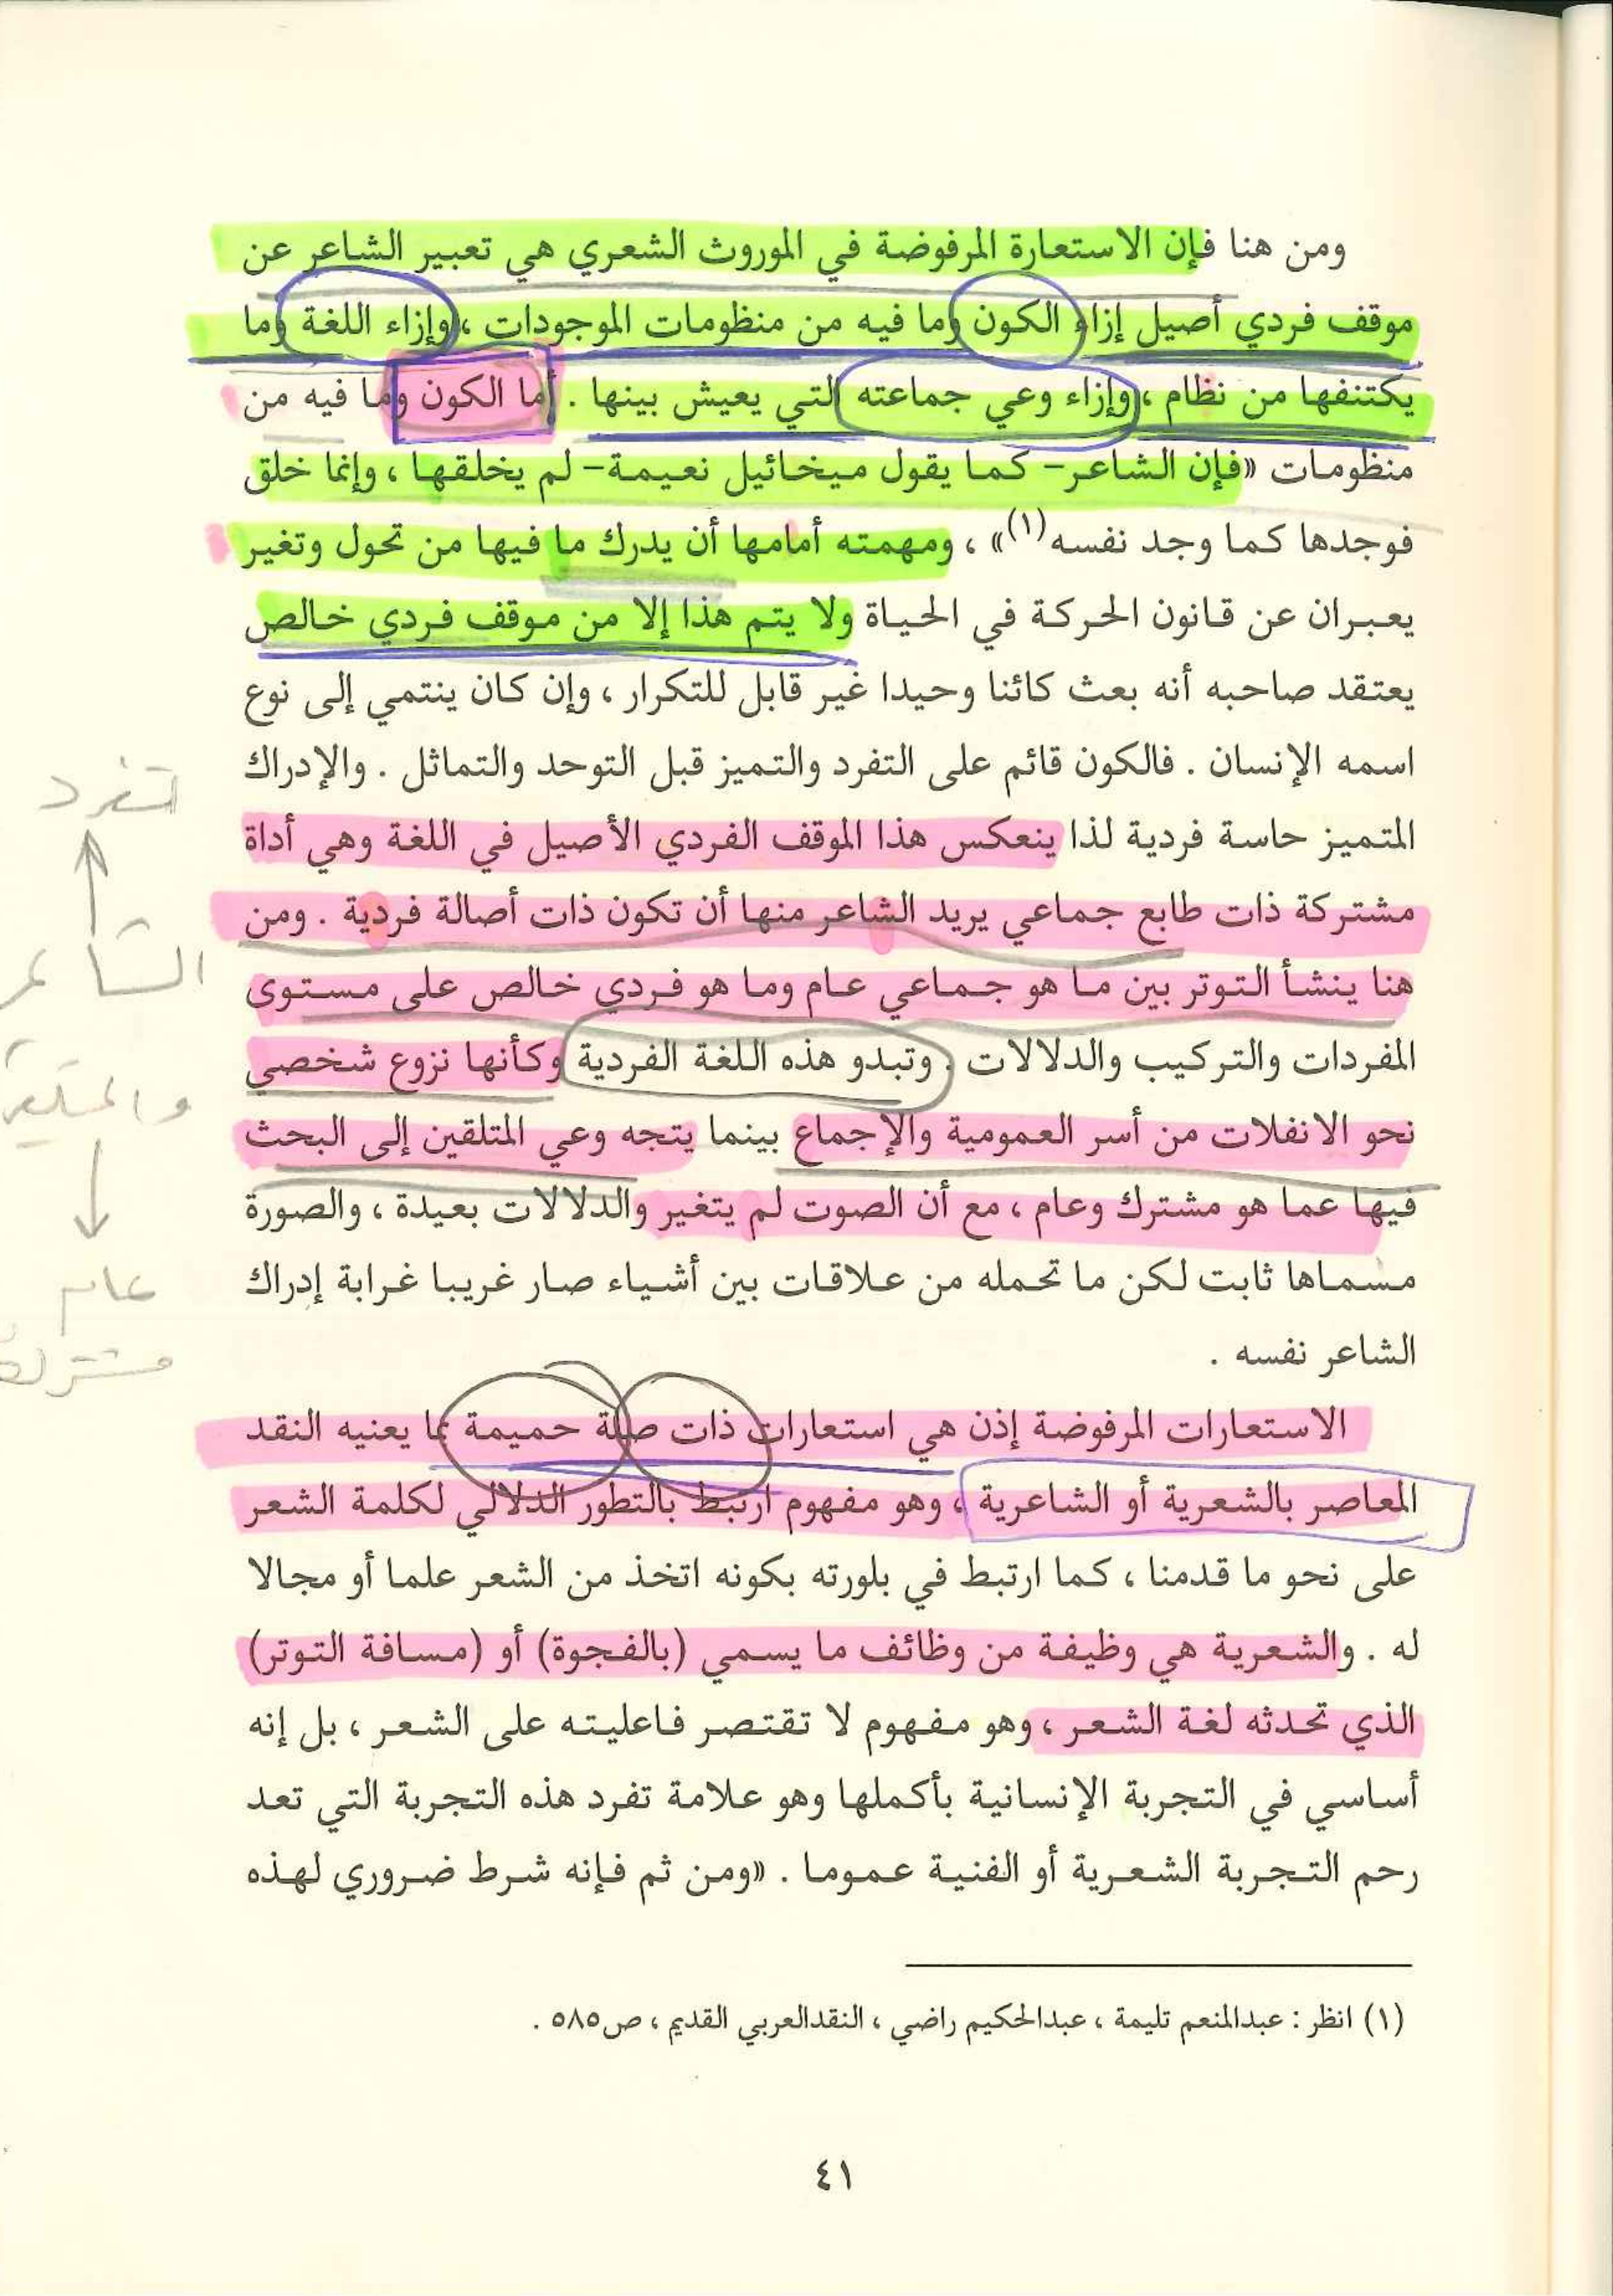 ومن هنا فإن الاستعارة المرفوضة في الموروث الشعري هي تعبير الشاعر عن
موقف فردي أصيل إزاء الكون وما فيه من منظومات الموجودات ، وإزاء اللغة وما
يكتنفها من نظام ، وإزاء وعي جماعته التي يعيش بينها . أما الكون وما فيه من
منظومات «فإن الشاعر- كما يقول ميخائيل نعيمة- لم يخلقها ، وإنما خلق
فوجدها كما وجد نفسه(١)» ، ومهمته أمامها أن يدرك ما فيها من تحول وتغير
يعبران عن قانون الحركة في الحياة ولا يتم هذا إلا من موقف فردي خالص
يعتقد صاحبه أنه بعث كائنا وحيدا غير قابل للتكرار ، وإن كان ينتمي إلى نوع
اسمه الإنسان . فالكون قائم على التفرد والتميز قبل التوحد والتماثل . والإدراك
المتميز حاسة فردية لذا ينعكس هذا الموقف الفردي الأصيل في اللغة وهي أداة
مشتركة ذات طابع جماعي يريد الشاعر منها أن تكون ذات أصالة فردية . ومن
هنا ينشأ التوتر بين ما هو جماعي عام وما هو فردي خالص على مستوى
المفردات والتركيب والدلالات . وتبدو هذه اللغة الفردية وكأنها نزوع شخصي
نحو الانفلات من أسر العمومية والإجماع بينما يتجه وعي المتلقين إلى البحث
فيها عما هو مشترك وعام ، مع أن الصوت لم يتغير والدلالات بعيدة ، والصورة
مسماها ثابت لكن ما تحمله من علاقات بين أشياء صار غريبا غرابة إدراك
الشاعر نفسه .
الاستعارات المرفوضة إذن هي استعارات ذات صلة حميمة بما يعنيه النقد
المعاصر بالشعرية أو الشاعرية ، وهو مفهوم ارتبط بالتطور الدلالي لكلمة الشعر
على نحو ما قدمنا ، كما ارتبط في بلورته بكونه اتخذ من الشعر علما أو مجالا
له . والشعرية هي وظيفة من وظائف ما يسمي (بالفجوة) أو (مسافة التوتر)
الذي تحدثه لغة الشعر ، وهو مفهوم لا تقتصر فاعليته على الشعر ، بل إنه
أساسي في التجربة الإنسانية بأكملها وهو علامة تفرد هذه التجربة التي تعد
رحم التجربة الشعرية أو الفنية عموما . «ومن ثم فإنه شرط ضروري لهذه
(١) انظر : عبدالمنعم تليمة ، عبدالحكيم راضي ، النقدالعربي القديم ، ص٥٨٥ .
٤١
تفرد
الشاعر
عام
مشترك